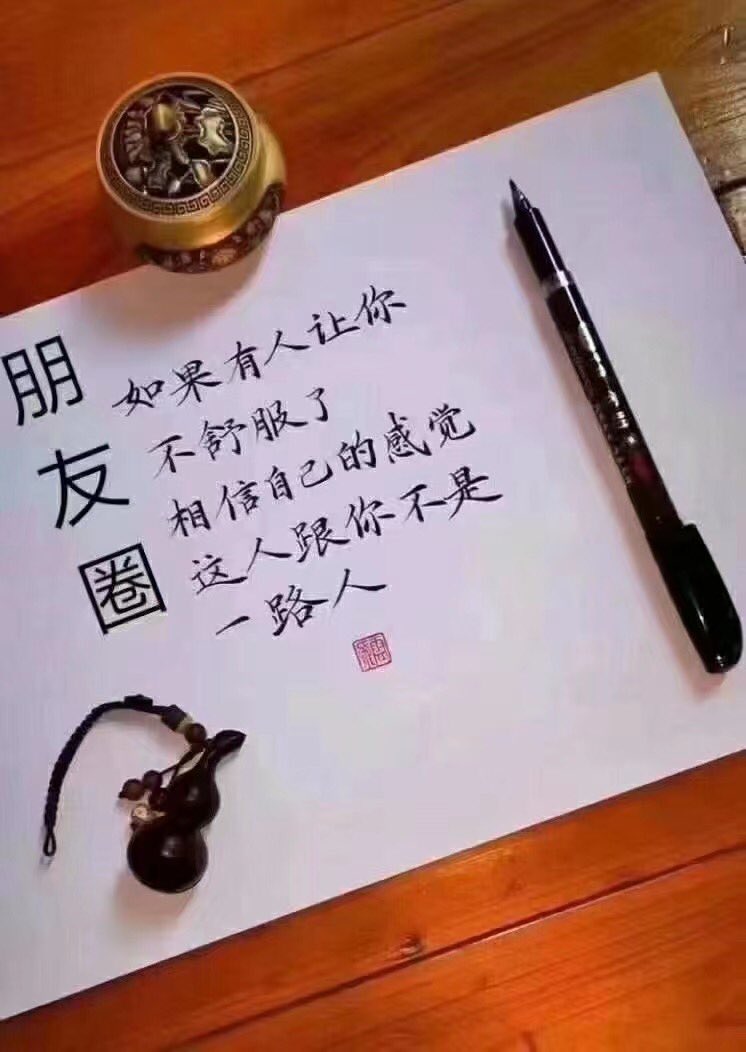 朋友圈
如果有人让你
不舒服了
相信自己的感觉
这人跟你不是
一路人